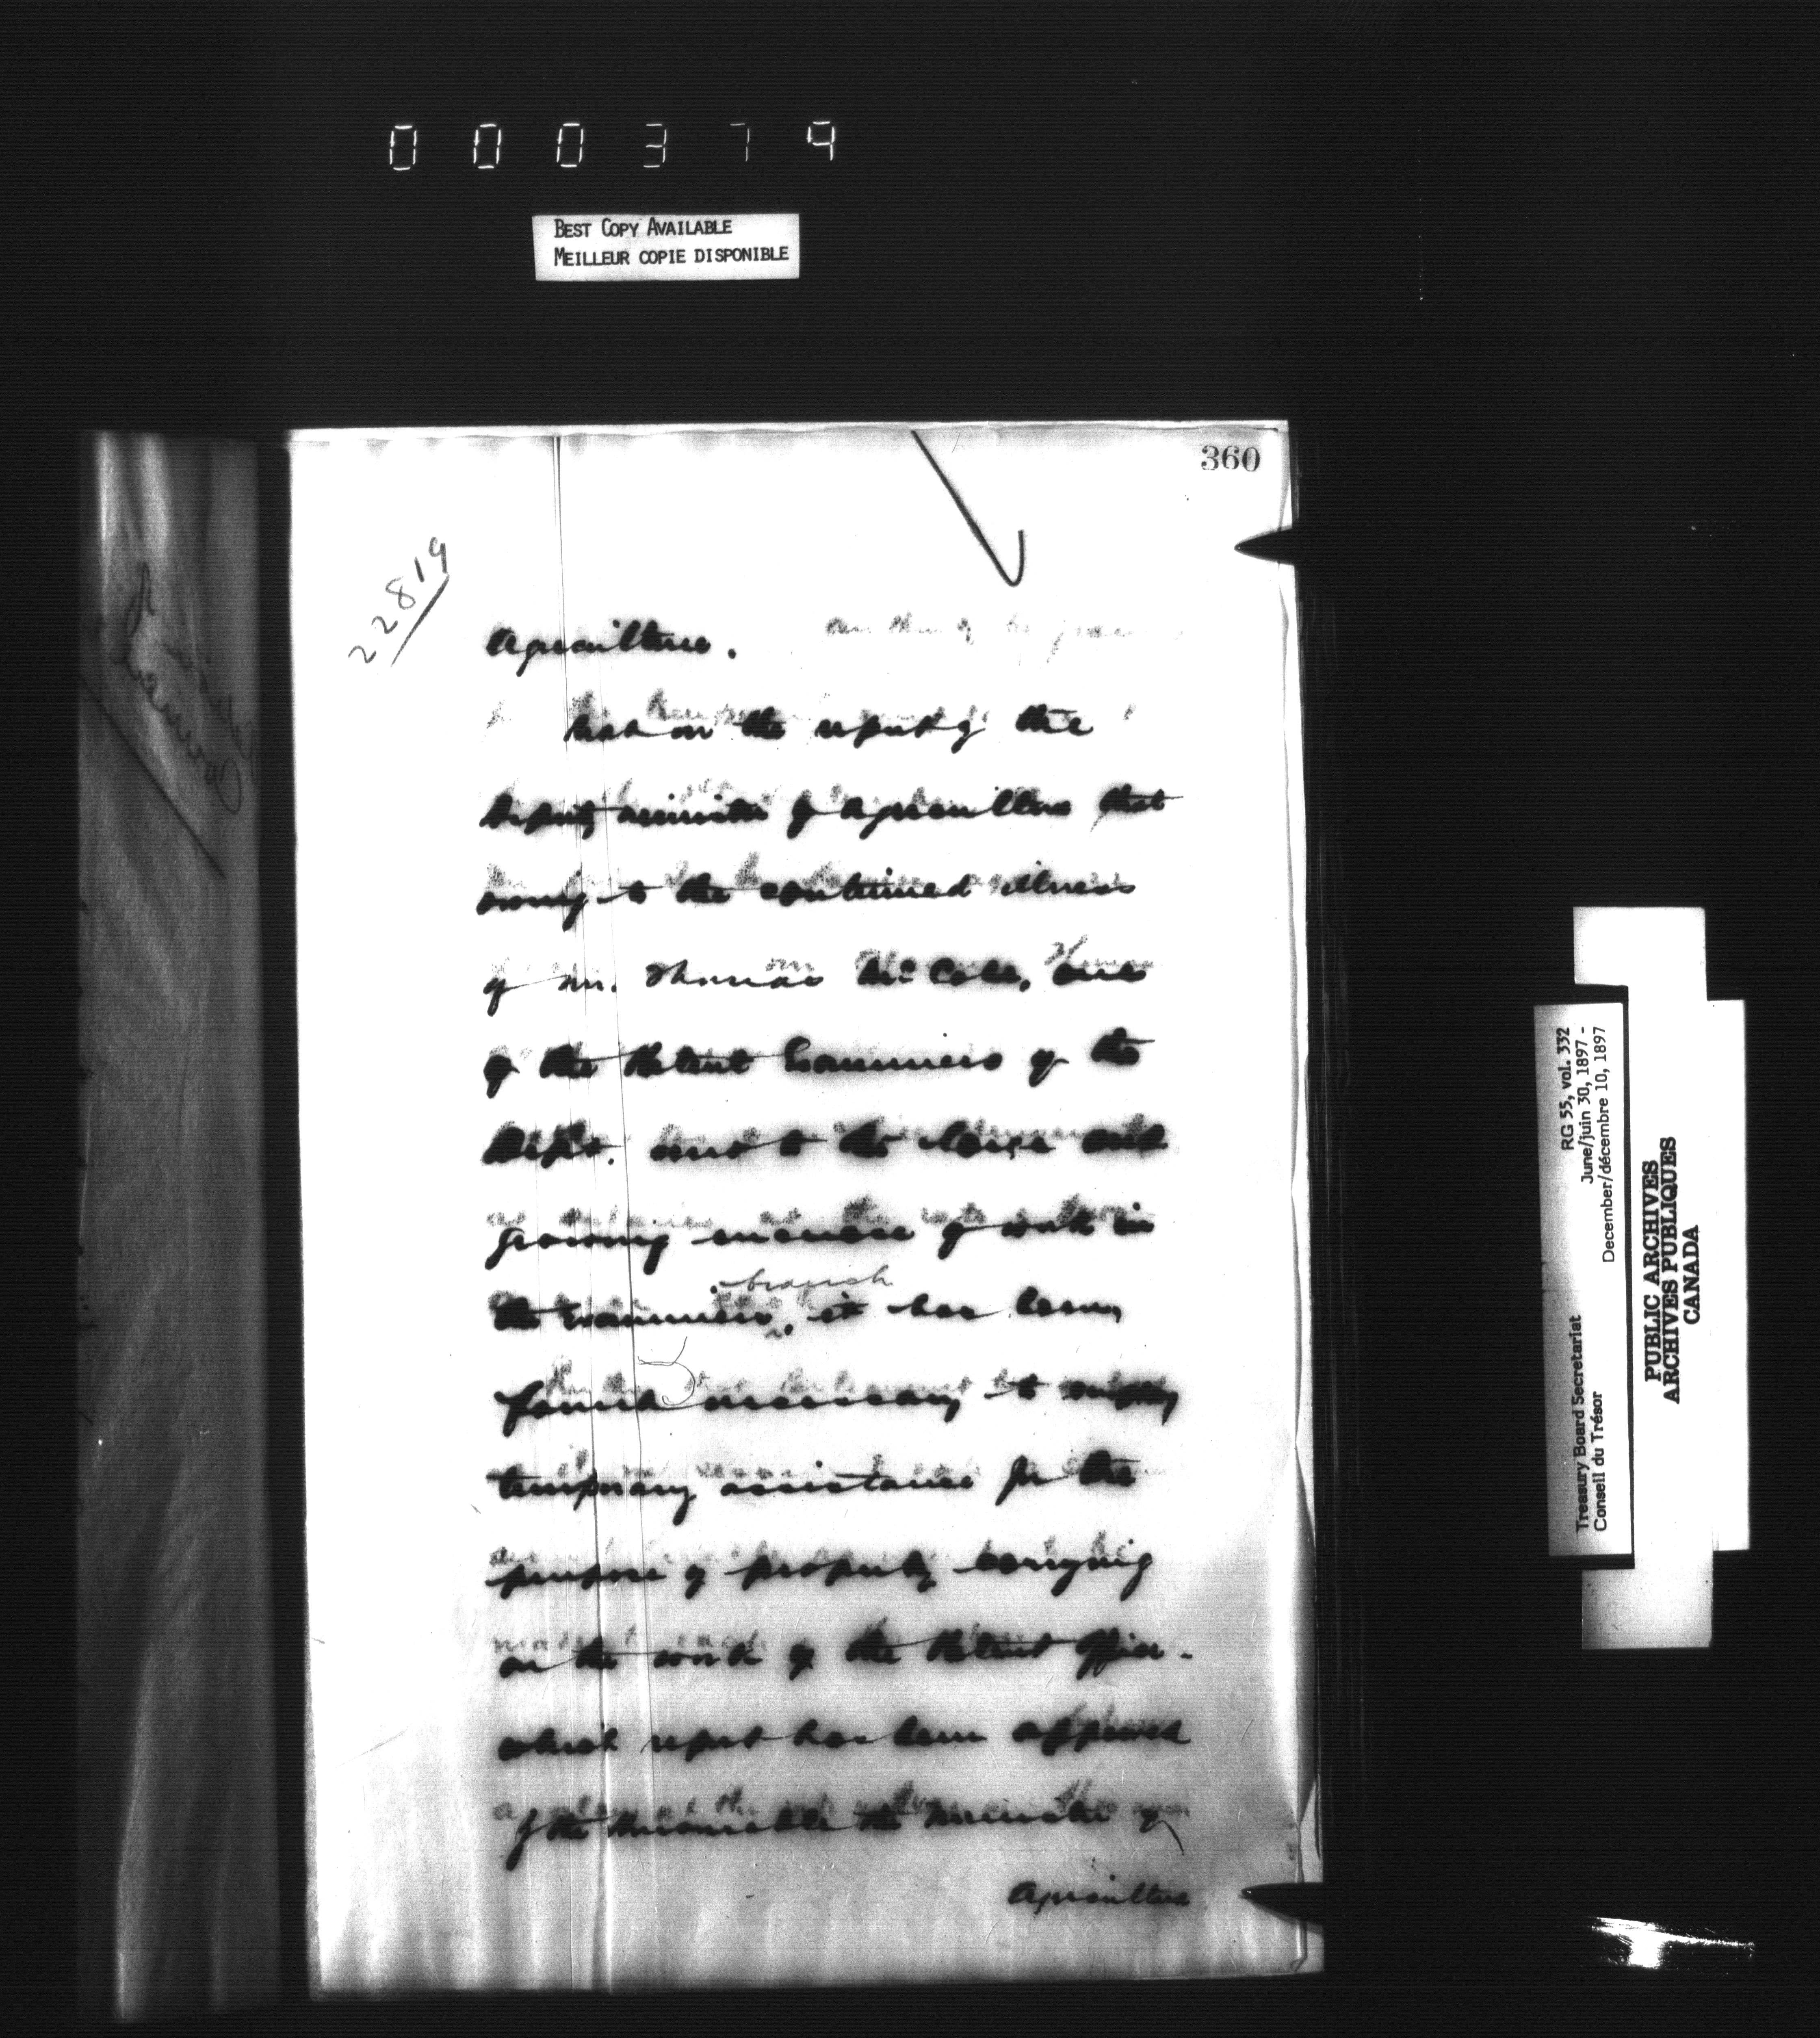 000379
BEST COPY AVAILABLE
MEILLEUR COPIE DISPONIBLE
360
22819
Agriculture.
on the report of the
Deputy Minister of Agriculture that
owing to the continued illness
of Mr. Thomas McCabe, one
of the Patent Examiners of the
Dept. and to the large and
growing increase of work in
branch
the Examiners, it has been
found necessary to employ
temporary assistance for the
purpose of properly carrying
on the work of the Patent Office.
which report has been approved
of the Honourable the Minister of
Agriculture
RG 55, vol. 332
June/juin 30, 1897 -
December/décembre 10, 1897
Treasury Board Secretariat
Conseil du Trésor
PUBLIC ARCHIVES
ARCHIVES PUBLIQUES
CANADA